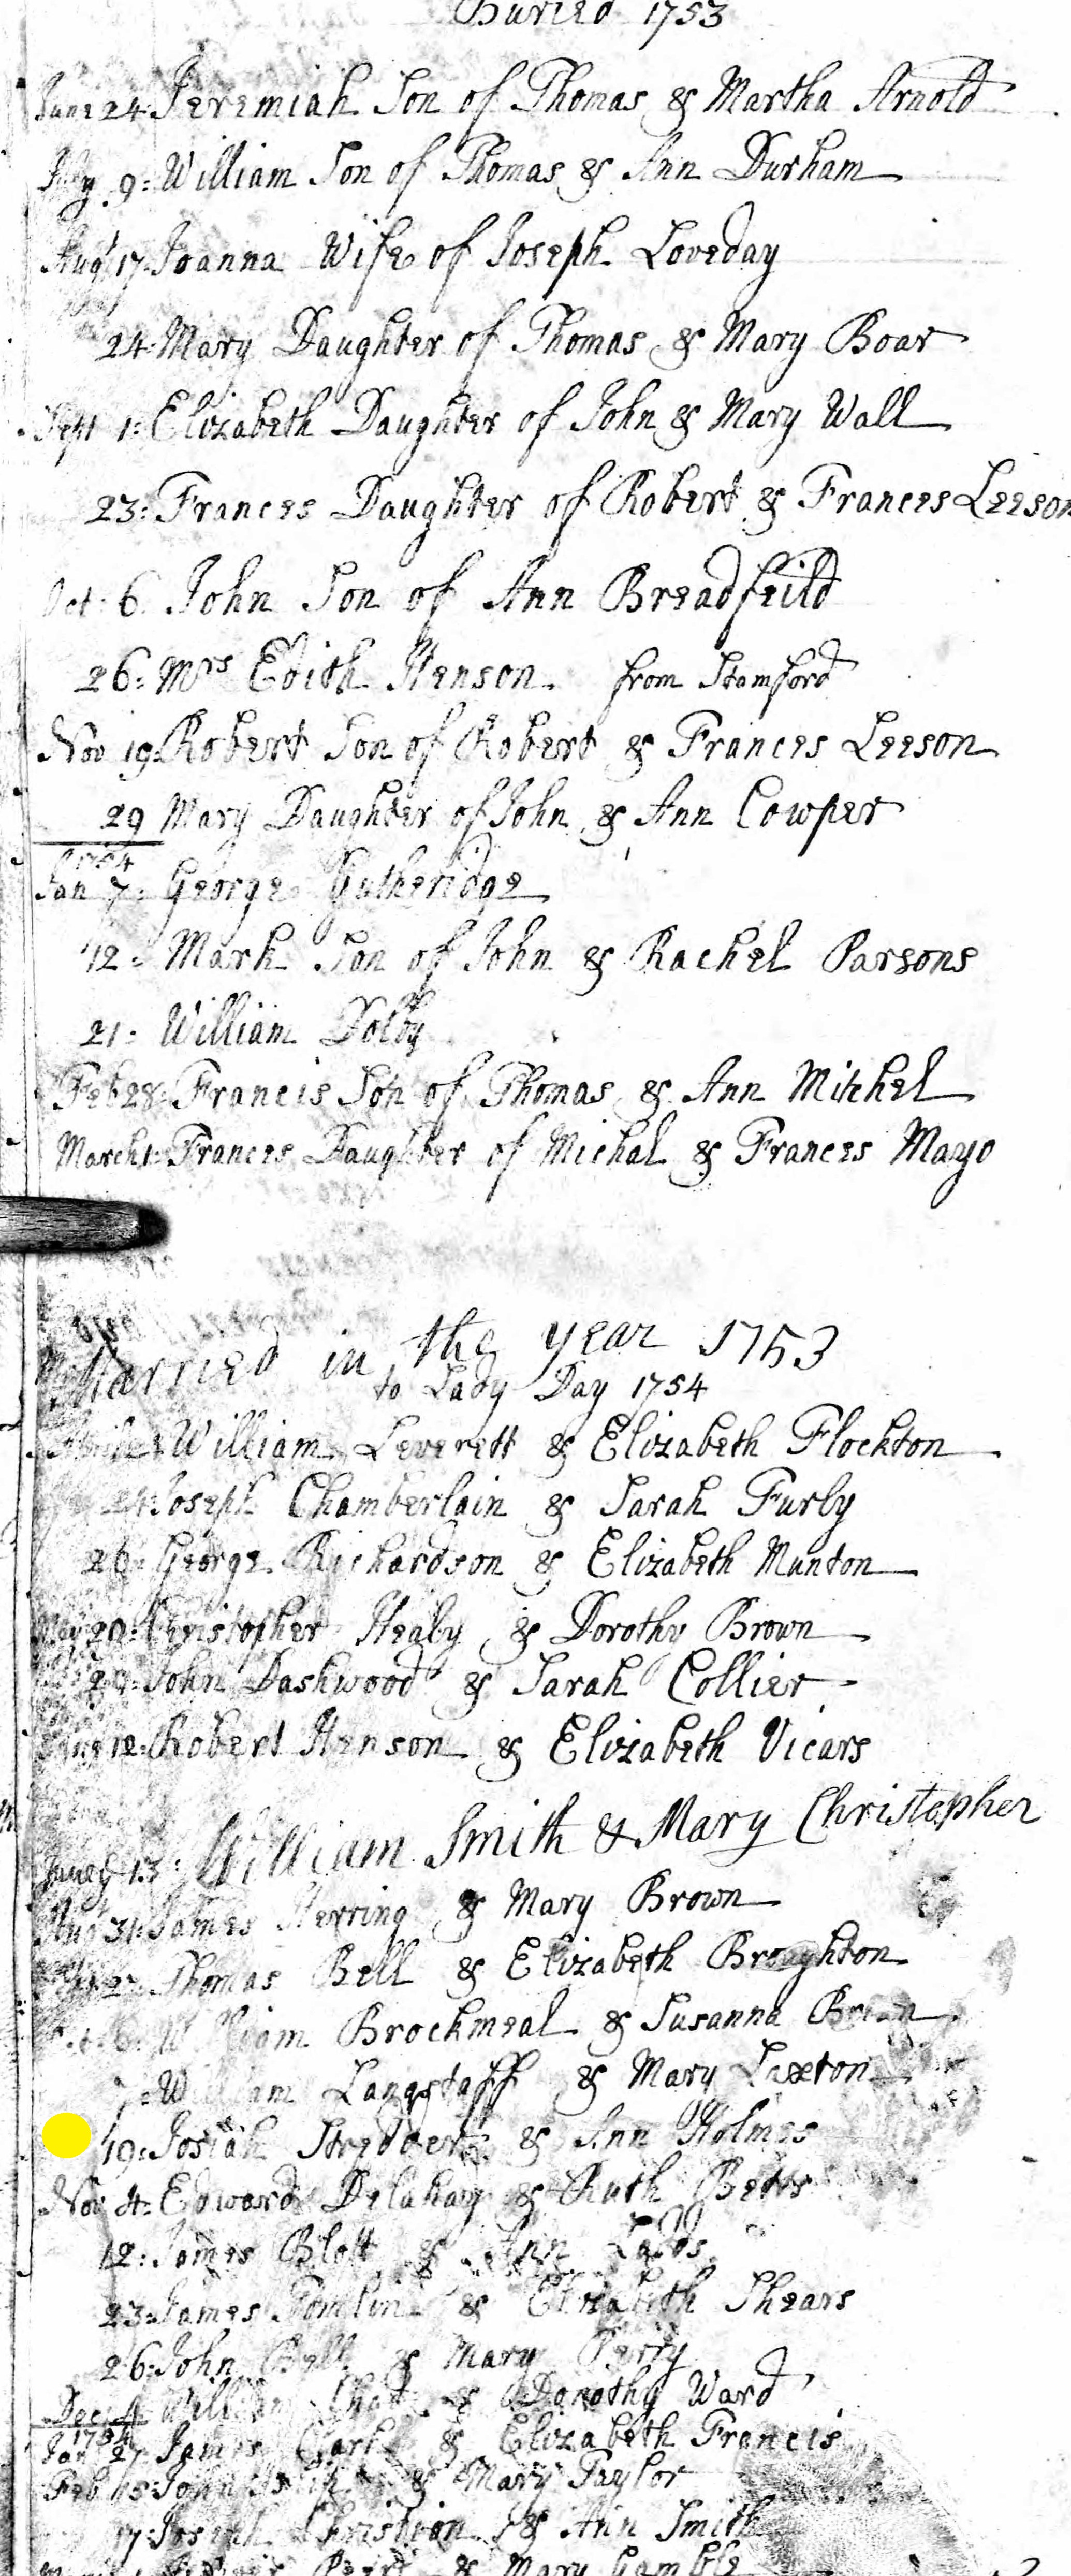 Buried 1753
June 24: Jeremiah Son of Thomas & Martha Arnold
July 9: William Son of Thomas & Ann Durham
Augt 17: Joanna Wife of Joseph Loveday
24: Mary Daughter of Thomas & Mary Boar
Sept 1: Elizabeth Daughter of John & Mary Wall
23: Frances Daughter of Robert & Frances Leeson
Oct: 6 John Son of Ann Breadfeild
26: Mrs Edith Henson from Stamford
Nov 19: Robert Son of Robert & Frances Leeson
29 Mary Daughter of John & Ann Cowper
1754
Jan 7: George Gutheridge
12: Mark Son of John & Rachel Parsons
21: William Dolby
Feb 28: Francis Son of Thomas & Ann Mitchel
March 1: Frances Daughter of Michal & Frances Mayo
Married in the year 1753
to Lady Day 1754
William Leverett & Elizabeth Flockton
24: Joseph Chamberlain & Sarah Furby
26: George Richardson & Elizabeth Manton
May 20: Christopher Healy & Dorothy Brown
John Dashwood & Sarah Collier
June 12: Robert Henson & Elizabeth Vicars
13: William Smith & Mary Christopher
Augt 31: James Herring & Mary Brown
Thomas Bell & Elizabeth Broughton
William Brockmeal & Susanna
7: William Langstaff & Mary Laxton
19: Josiah & Ann Holmes
Nov 4: Edward Delahay & Ruth Betts
12: James Blott & Ann
23: James Tomlin & Elizabeth Shears
26: John Bell & Mary Perry
Dec: William & Dorothy Ward
1754
Jan 27 James Clark & Elizabeth Francis
Feb 15: John & Mary Taylor
17: Joseph Christian & Ann Smith
& Mary Gamble